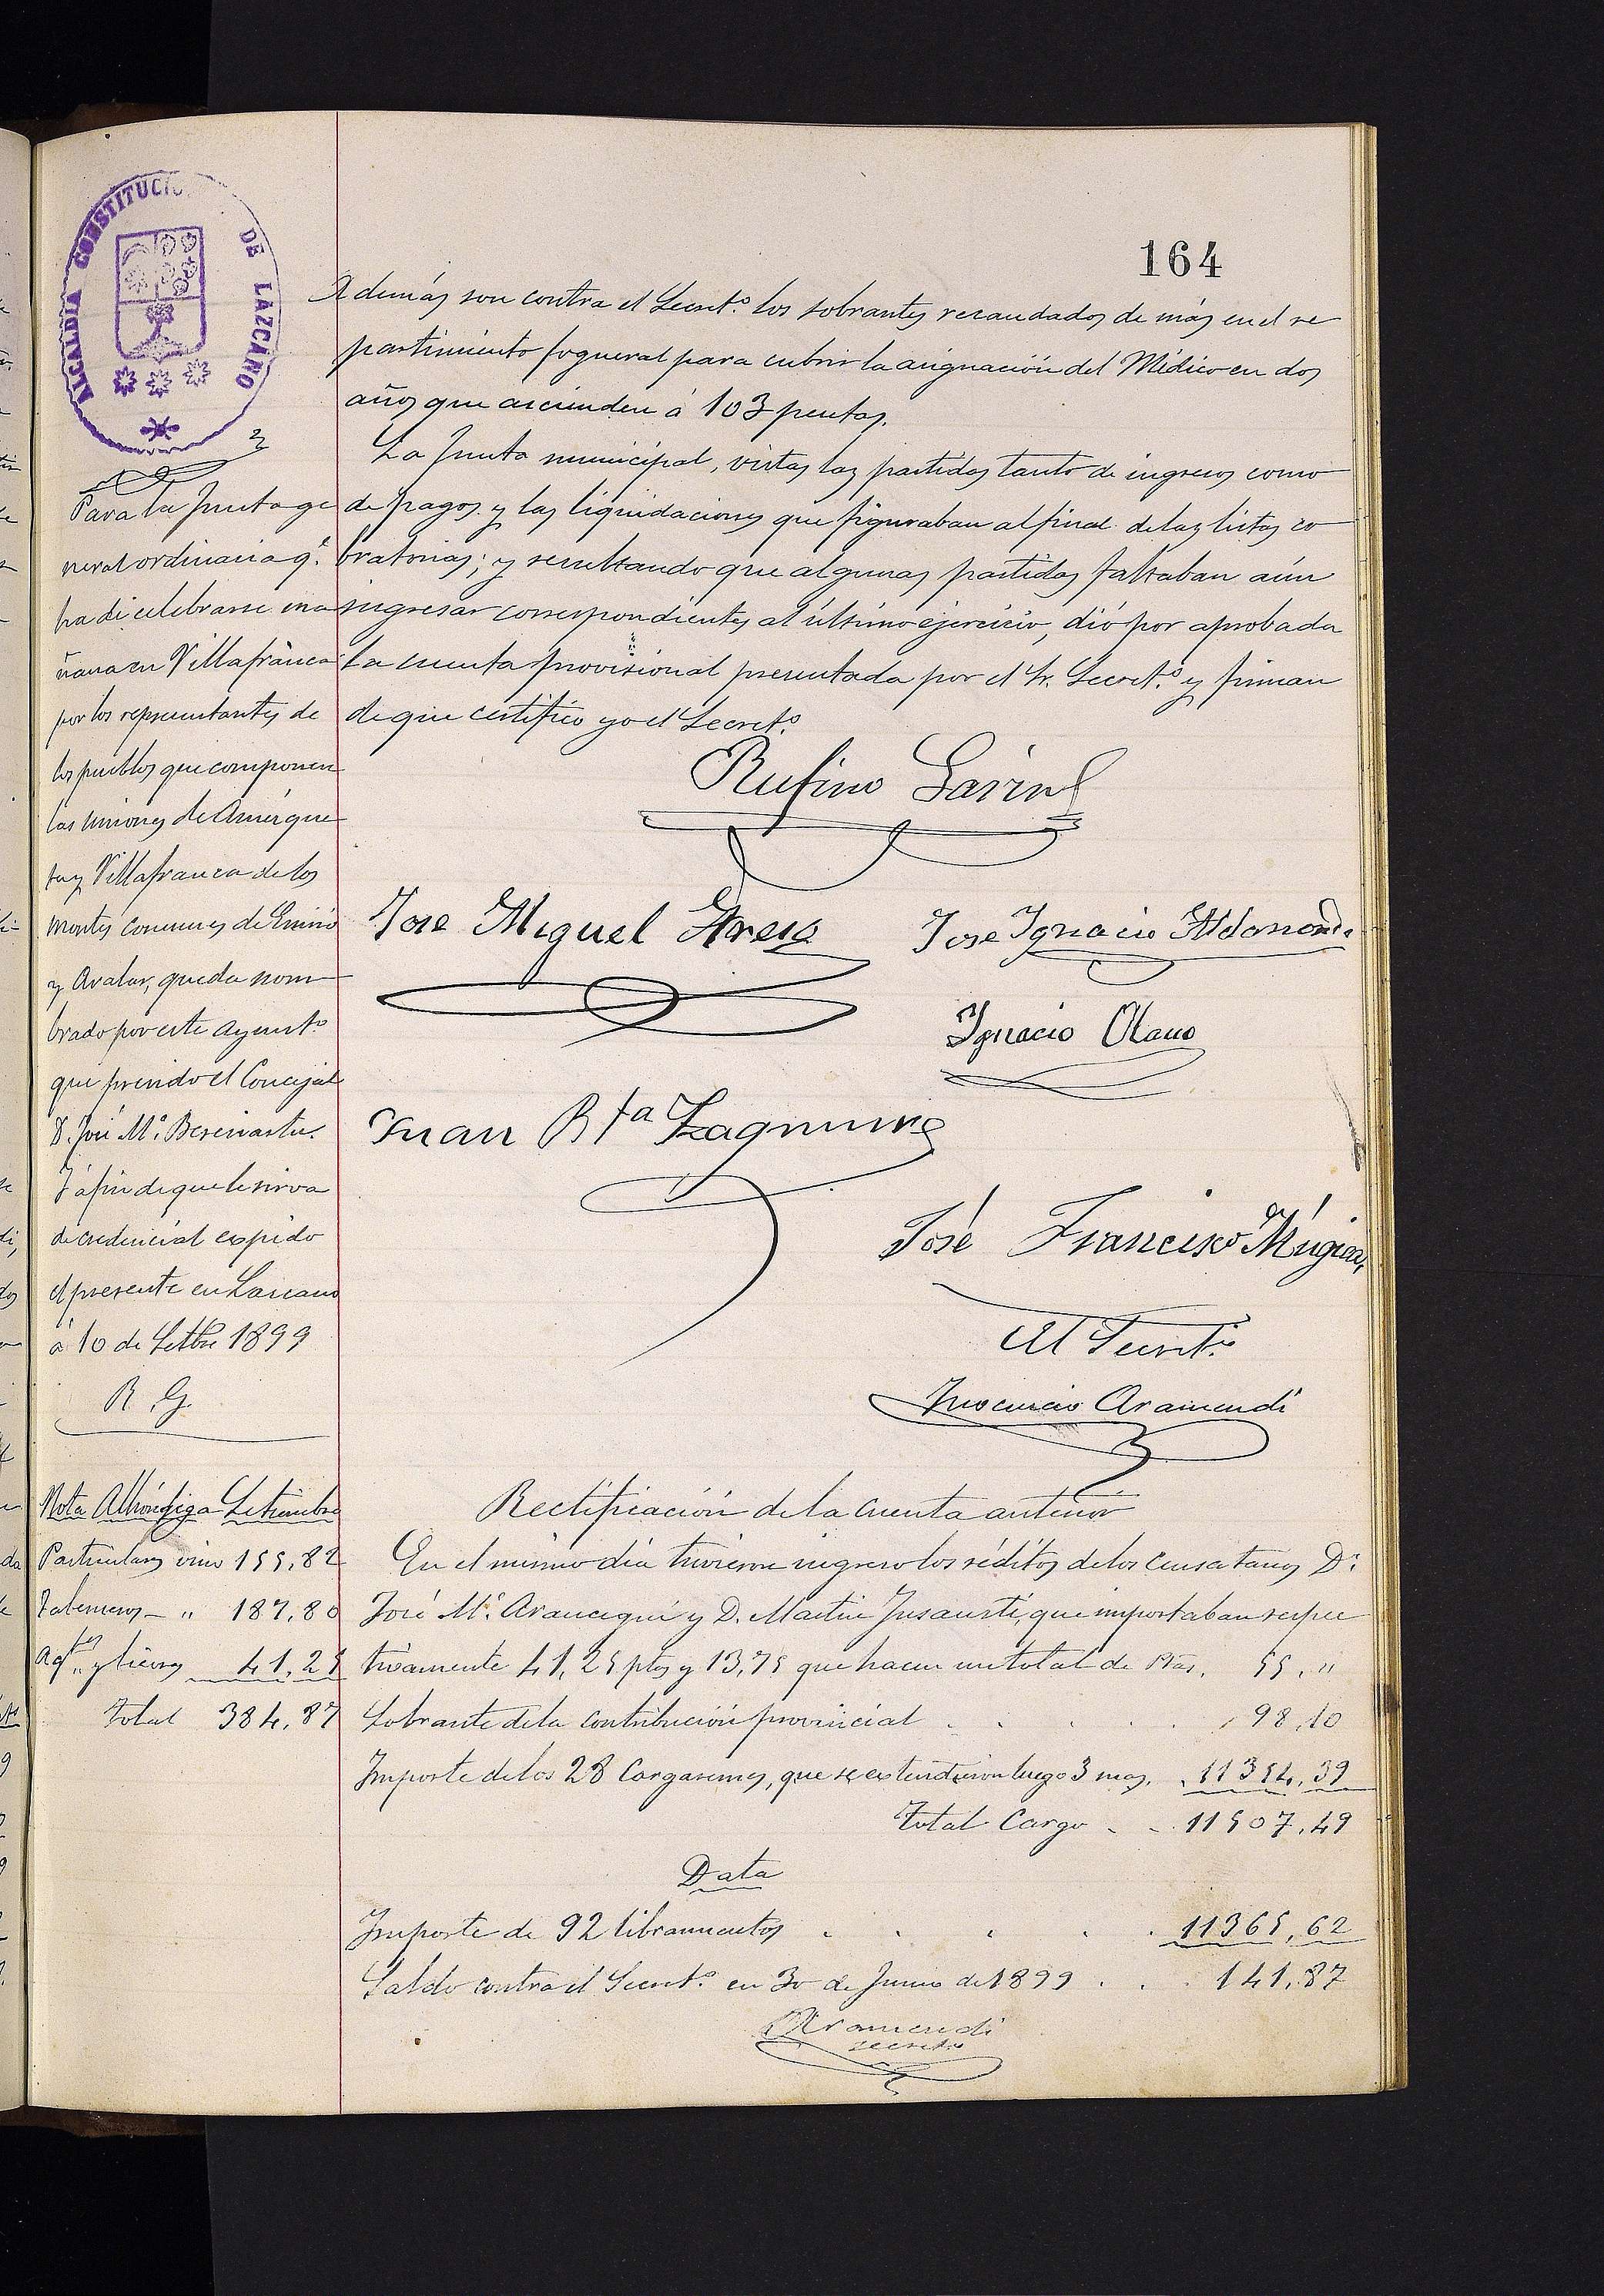 164
ALCALDIA CONSTITUCIO DE LAZCANO
Además son contra el Secret.º los sobrantes recaudados de más en el re
partimiento fogueral para cubrir la asignación del Médico en dos
años que ascienden á 103 pesetas.
La Junta municipal, vistas las partidas tanto de ingresos como
de pagos y las liquidaciones que figuraban al final de las listas co
bratorias; y resultando que algunas partidas faltaban aún
ingresar correspondientes al último ejercicio, dió por aprobada
la cuenta provisional presentada por el Sr. Secret.º y firman
de que certifico yo el Secret.º
Rufino
Jose Miguel
Jose Ignacio Aldasoro
Ignacio Olano
Juan Bta
José Francisco Múgica
El Secret.º
Inocencio Aramendi
Para la Junta ge
neral ordinaria q.e
ha de celebrarse ma
ñana en Villafranca
por los representantes de
los pueblos que componen
las uniones de Amézque
ta y Villafranca de los
montes comunes de Enirio
y Aralar, queda nom
brado por este Ayunt.º
que presido el Concejal
D. José M.ª
Y á fin de que le sirva
de credencial expido
el presente en Lazcano
á 10 de Setbre 1899
R. G.
Nota Alhóndiga Setiembre
Particulares vino 155,82
Taberneros - " 187,80
Ag.tes y licores 41,25
Total 384,87
Rectificación de la cuenta anterior
En el mismo día tuvieron ingreso los réditos de los censatarios D.n
José M.ª Arancegui y D. Martin Insausti, que importaban respec
tivamente 41,25 ptas y 13,75 que hacen un total de Ptas. 55,"
Sobrante de la contribución provincial . . . . 98,10
Importe de los 28 Cargaremes, que se extendieron luego 3 mas. 11354,39
Total Cargo . . 11507,49
Data
Importe de 92 libramientos . . . . . 11365,62
Saldo contra el Secret.º en 30 de Junio de 1899 . . . 141,87
Aramendi
secret.º